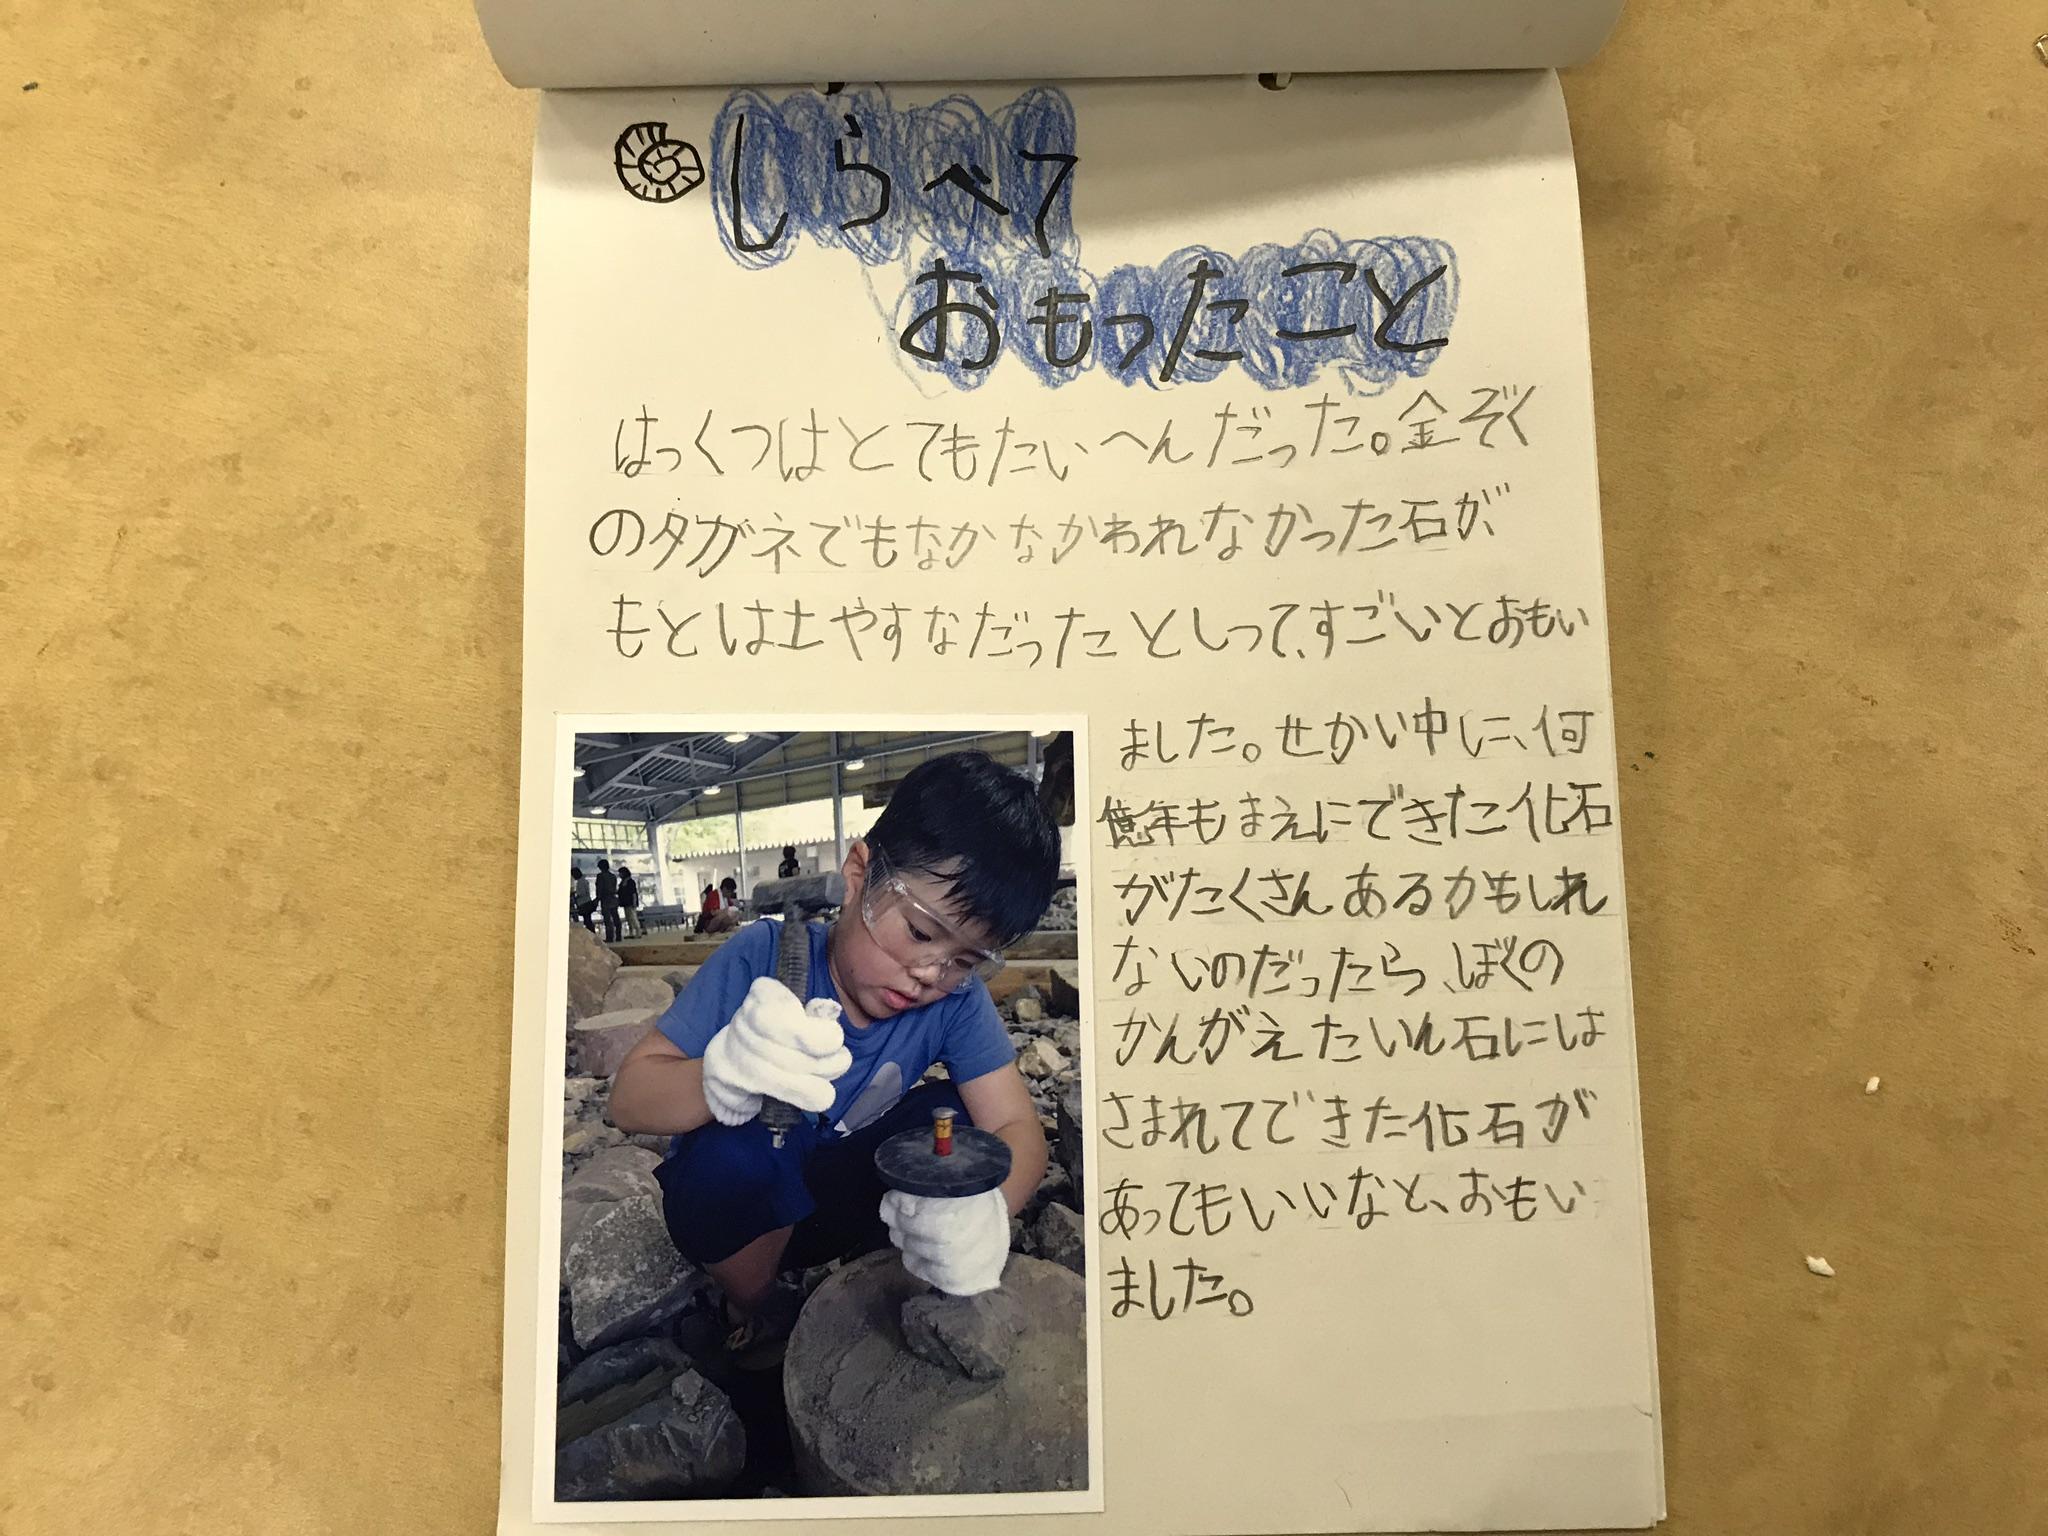 しらべて
おもったこと
はっくつはとてもたいへんだった。金ぞく
のタガネでもなかなかわれなかった石が、
もとは土やすなだったとしって、すごいとおもい
ました。せかい中に、何
億年もまえにできた化石
がたくさんあるかもしれ
ないのだったら、ぼくの
かんがえたいん石には
さまれてできた化石が
あってもいいなと、おもい
ました。